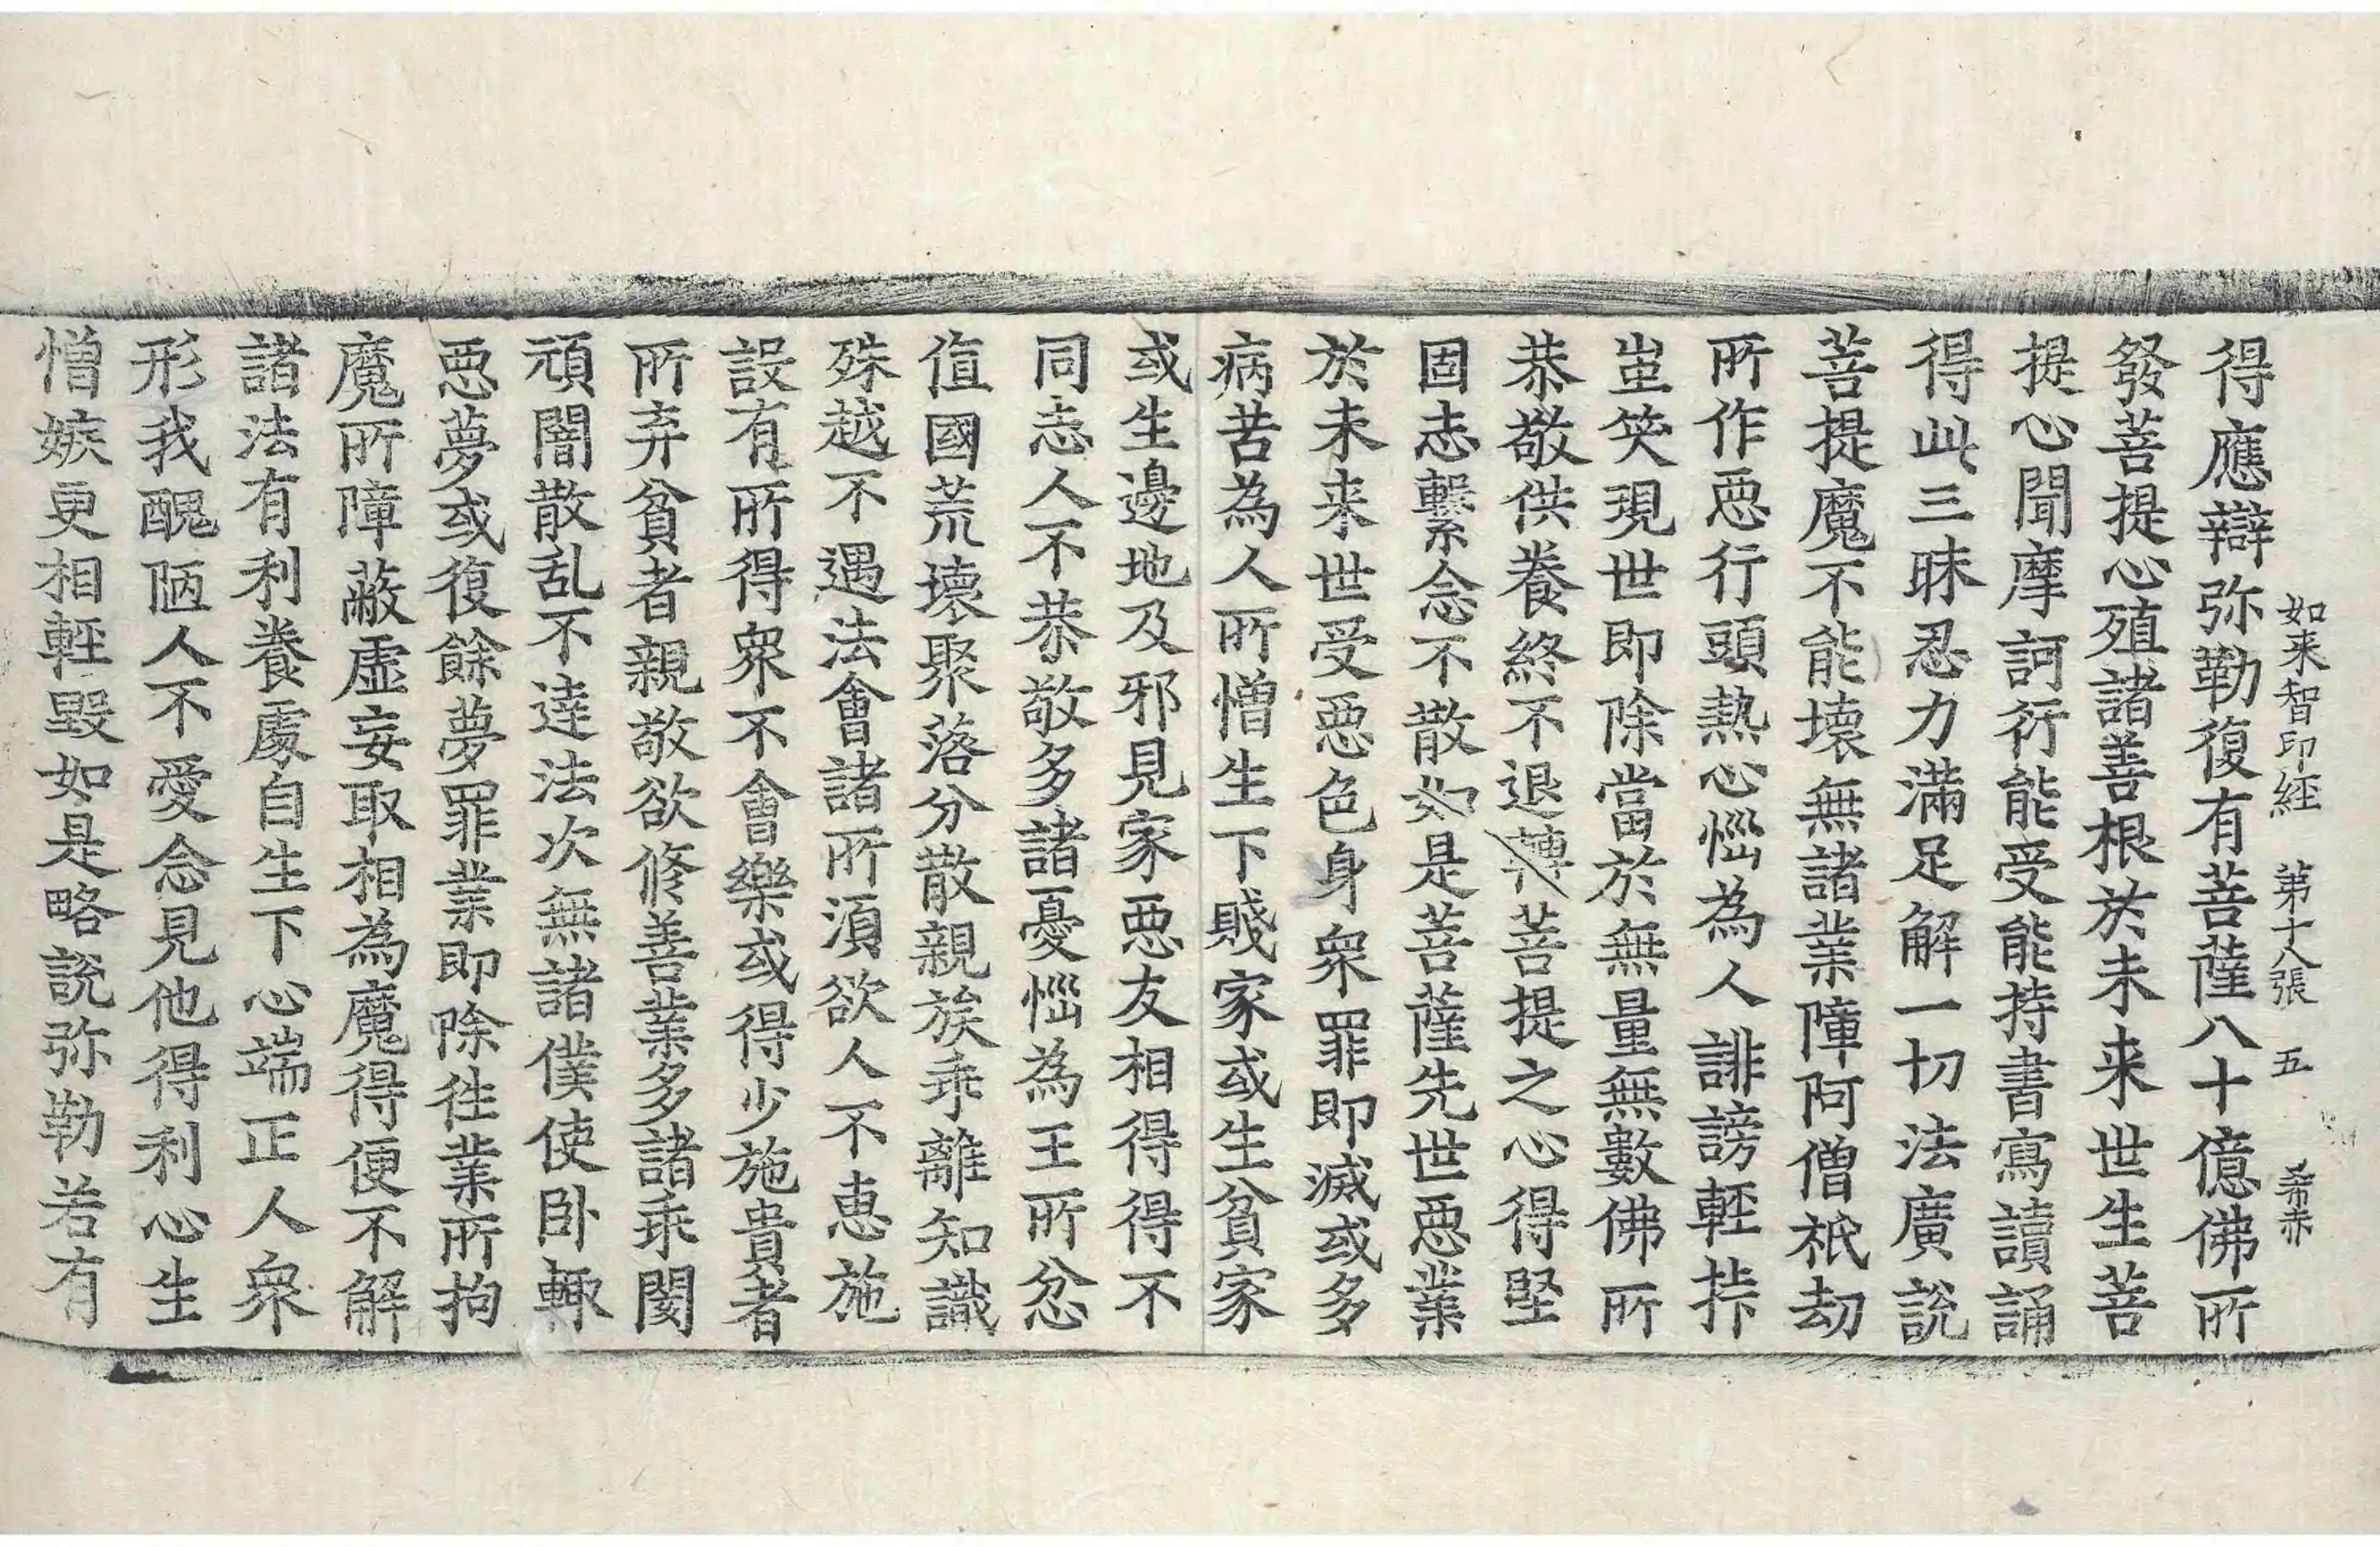 如来智印経 第十八張 五 希赤
得應辯弥勒復有菩薩八十億佛所
發菩提心殖諸善根於未来世生菩
提心聞摩訶衍能受能持書寫讀誦
得此三昧忍力滿足解一切法廣說
菩提魔不能壞無諸業障阿僧祇劫
所作惡行頭熱心惱為人誹謗輕
蚩笑現世即除當於無量無數佛所
恭敬供養終不退轉菩提之心得堅
固志繫念不散如是菩薩先世惡業
於未来世受惡色身衆罪即滅或多
病苦為人所憎生下賤家或生貧家
或生邊地及邪見家惡友相得得不
同志人不恭敬多諸憂惱為王所忿
值國荒壞聚落分散親族乖離知識
殊越不遇法會諸所須欲人不惠施
設有所得衆不會樂或得少施貴者
所弃貧者親敬欲修善業多諸乖閡
頑闇散乱不達法次無諸僕使卧輙
惡夢或復餘夢罪業即除徃業所拘
魔所障蔽虛妄取相為魔得便不解
諸法有利養處自生下心端正人衆
形我醜陋人不愛念見他得利心生
憎嫉更相輕毀如是略說弥勒若有